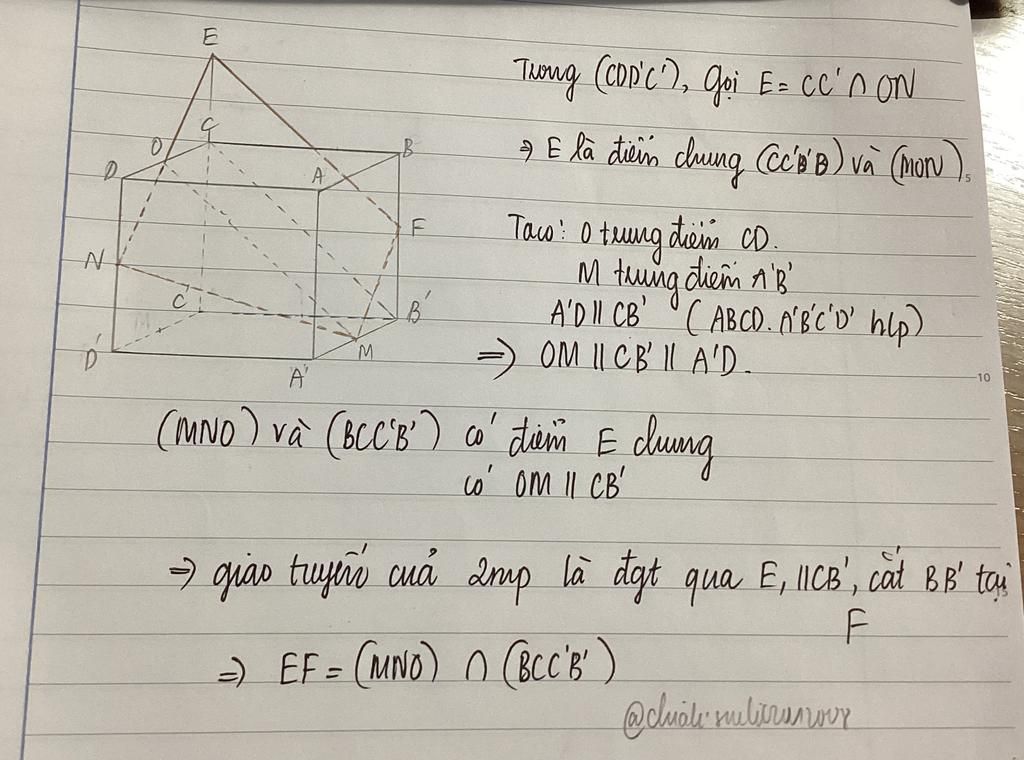 E
C
O
B
D
A
F
N
C'
B'
M
D'
A'
Trong (CDD'C'), gọi E = CC' ∩ ON
⇒ E là điểm chung (CC'B'B) và (MON).
5
Ta có: O trung điểm CD.
M trung điểm A'B'
A'D // CB' (ABCD.A'B'C'D' hlp)
⇒ OM // CB' // A'D.
10
(MNO) và (BCC'B') có điểm E chung
có OM // CB'
⇒ giao tuyến của 2mp là đgt qua E, //CB', cắt BB' tại
F
⇒ EF = (MNO) ∩ (BCC'B')